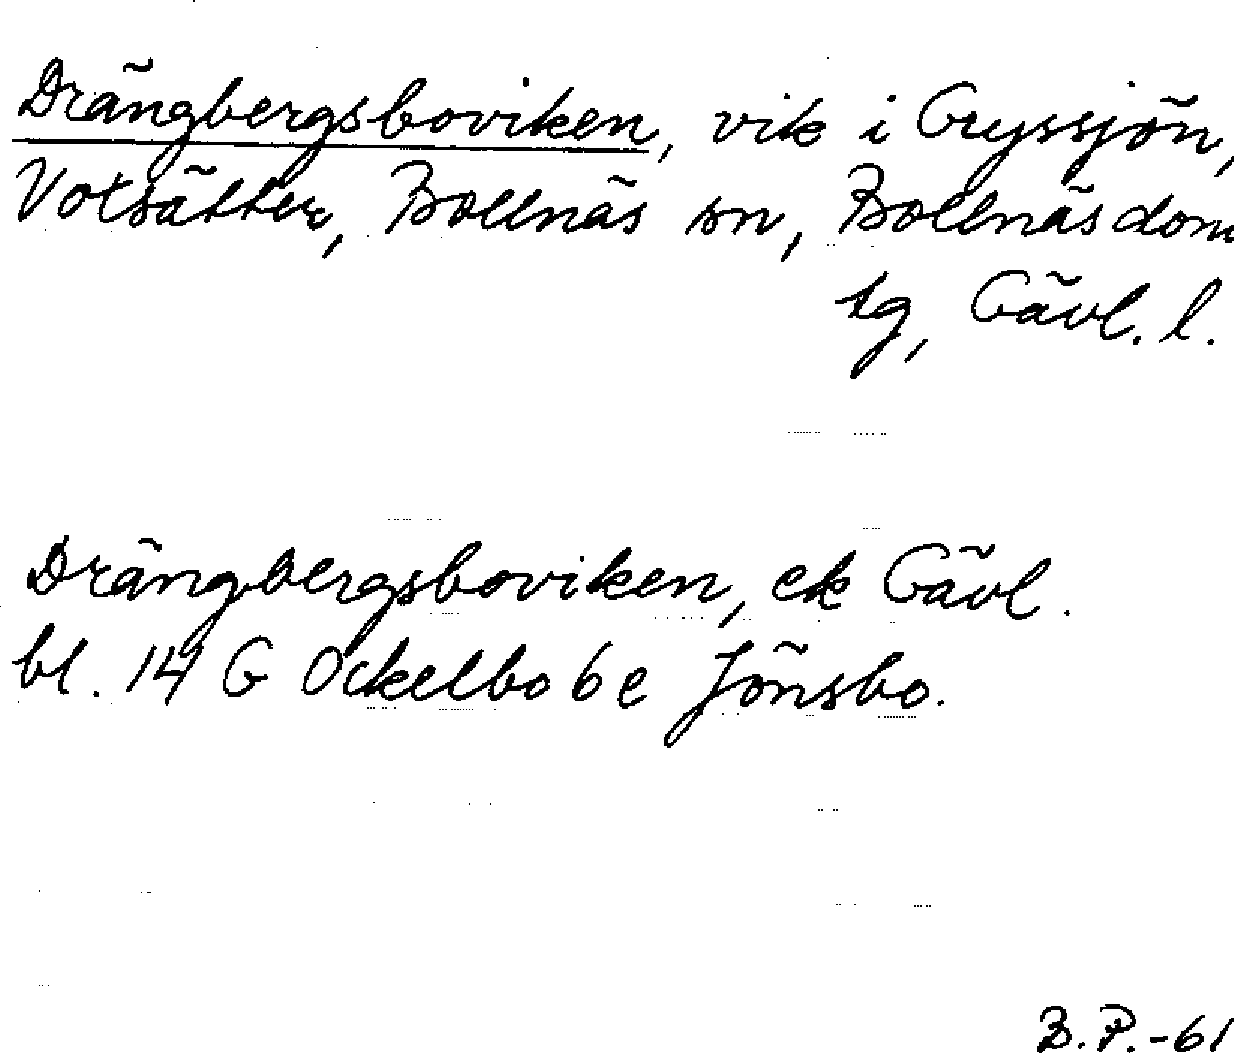 Drängbergsboviken, vik i Gryssjön,
Votsätter, Bollnäs sn, Bollnäs dom
tg, Gävl. l.
Drängbergsboviken, ek Gävl.
bl. 14 G Ockelbo 6 e Jönsbo.
B.P.-61